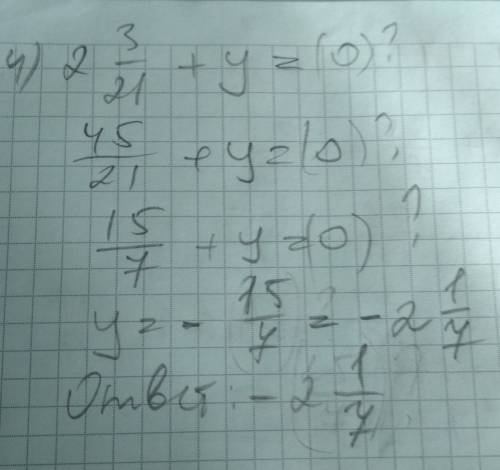 4) 2 3/21 + y = (0)?
45/21 + y = (0)?
15/7 + y = (0) ?
y = - 15/7 = - 2 1/7
Ответ: - 2 1/7